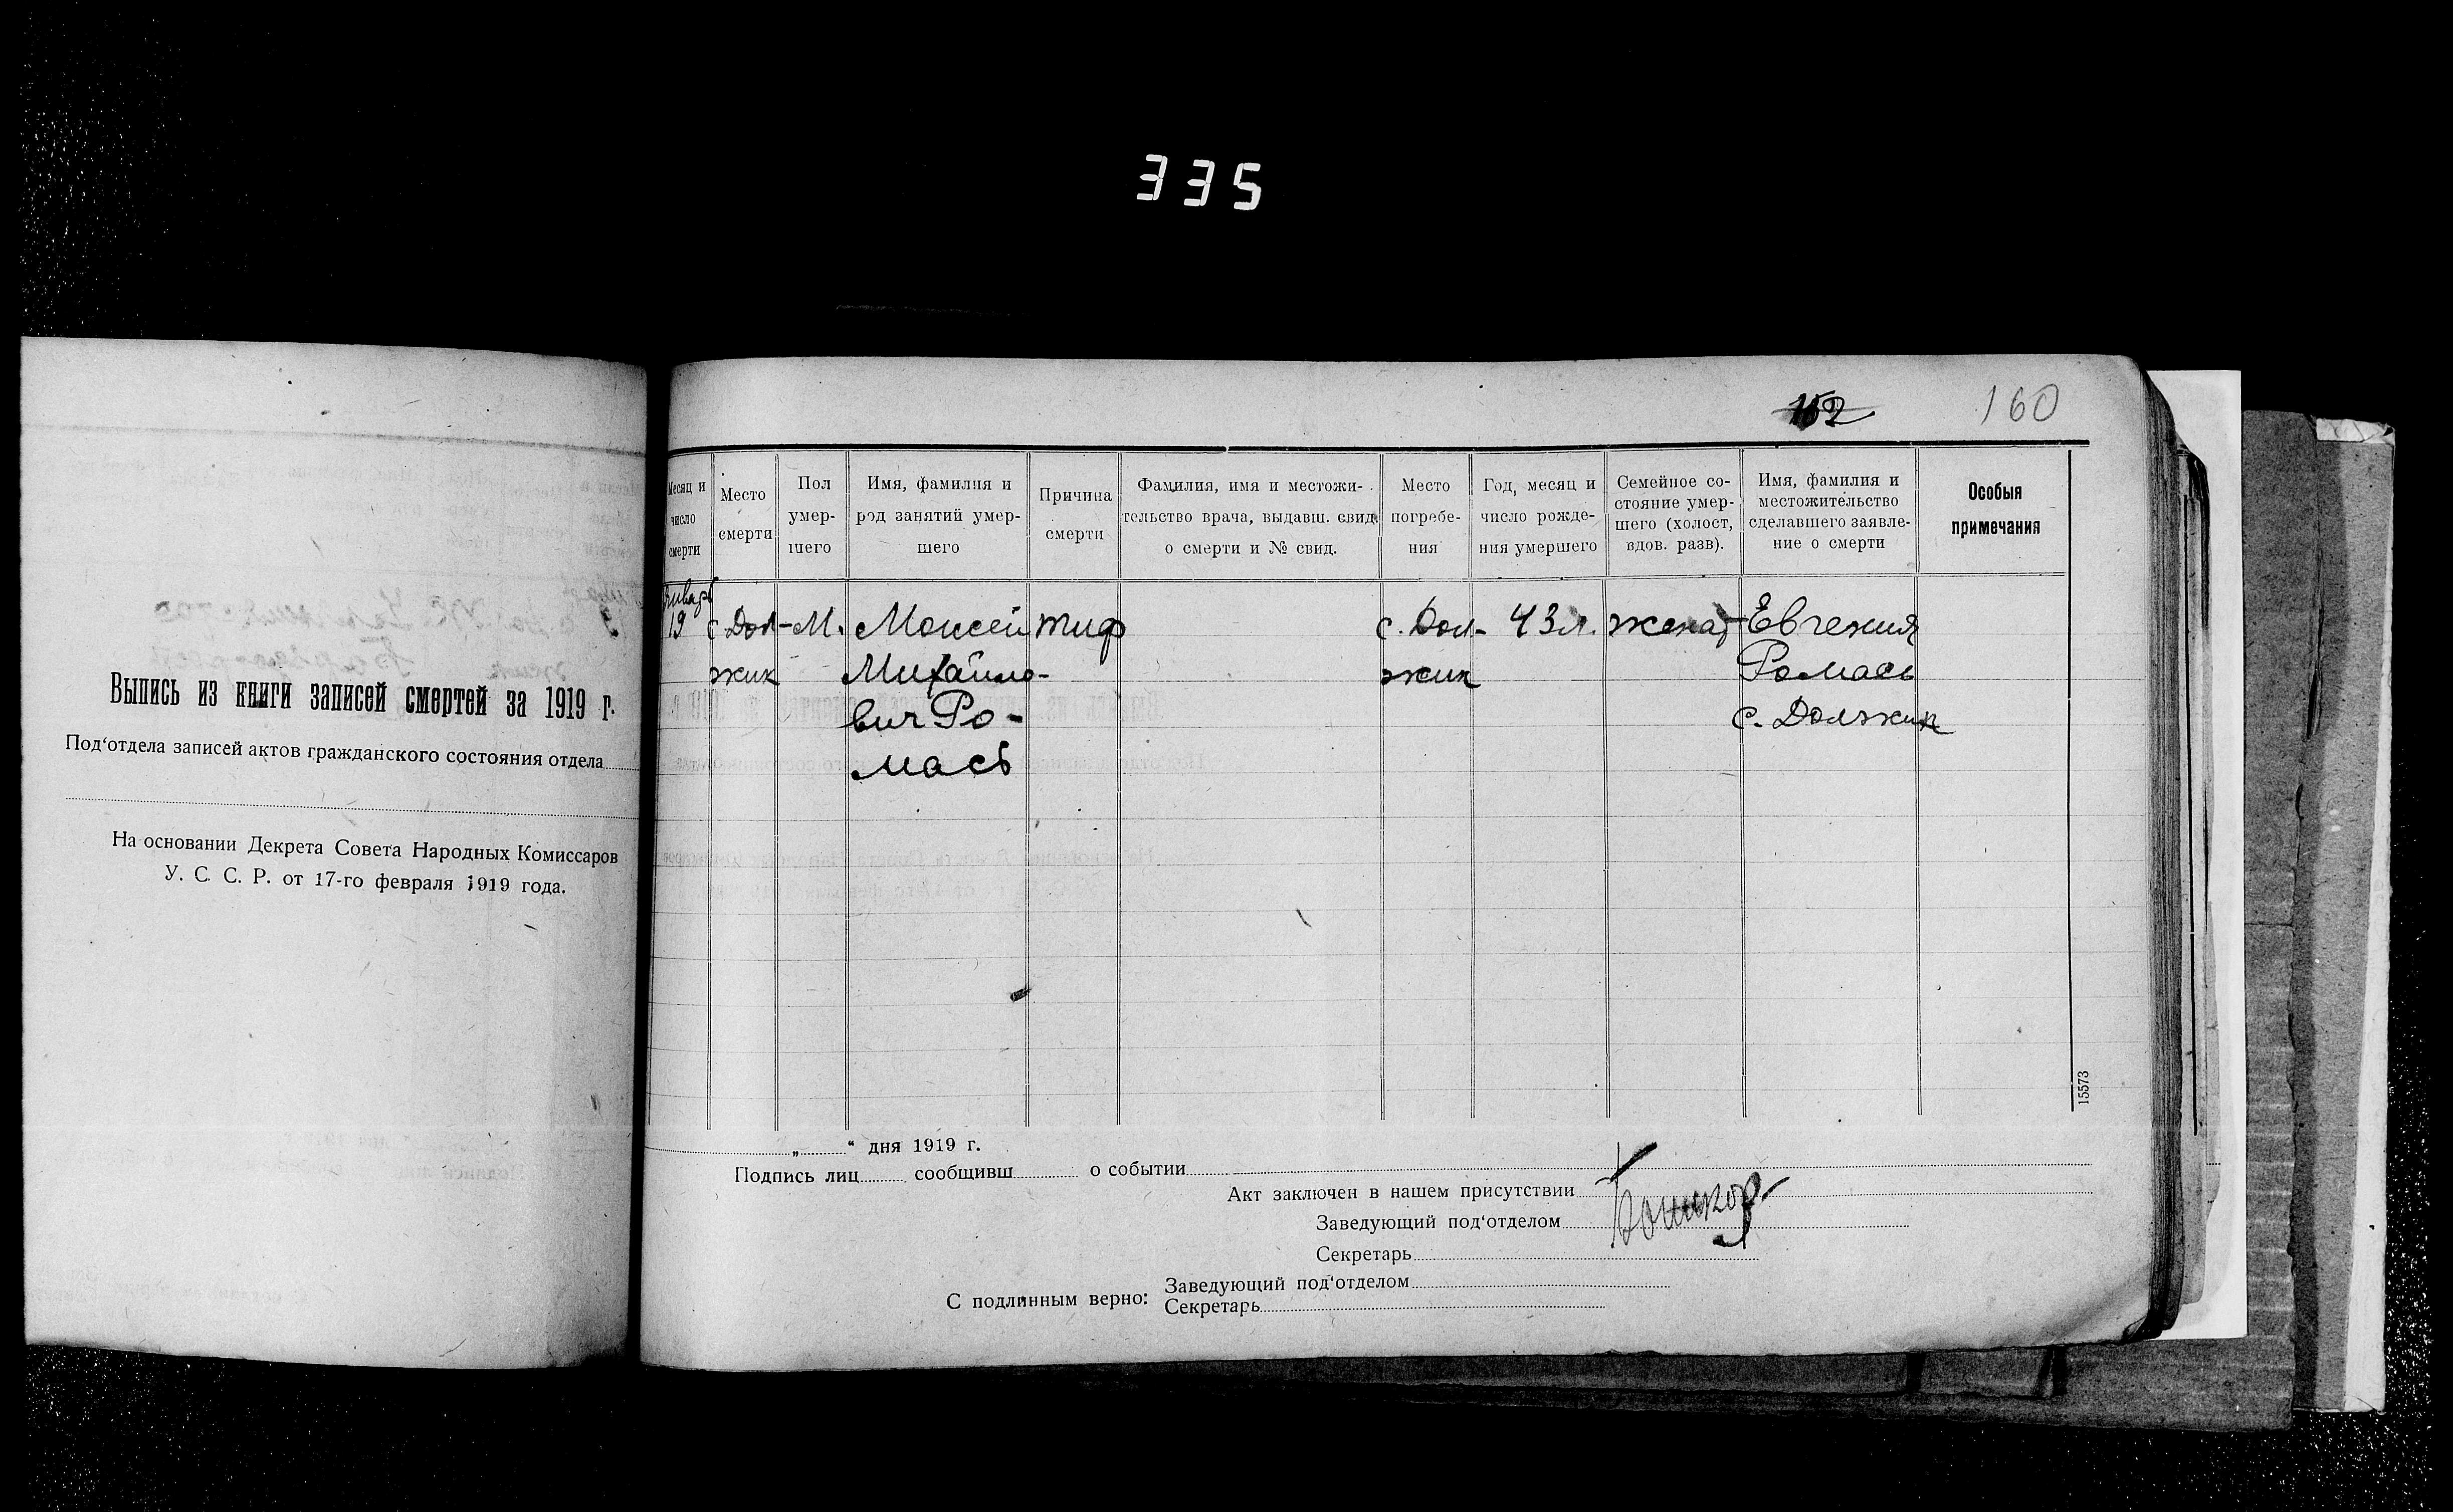 335
Выпись из книги записей смертей за 1919 г.
Под‘отдела записей актов гражданского состояния отдела
На основании Декрета Совета Народных Комиссаров
У. С. С. Р. от 17-го февраля 1919 года.
160
Месяц и число смерти
Место смерти
Пол умер-
шего
Имя, фамилия и
род занятий умер-
шего
Причина
смерти
Фамилия, имя и местожи-
тельство врача, выдавш. свид.
о смерти и № свид.
Место
погребе-
ния
Год, месяц и
число рожде-
ния умершего
Семейное со-
стояние умер-
шего (холост,
вдов. разв).
Имя, фамилия и
местожительство
сделавшего заявле-
ние о смерти
Особыя
примечания
Январь
19
с. Дол-
жик
М.
Моисей
Михайло-
вич Ро-
мась
тиф
с. Дол-
жик
43 л.
женат
Евгения
Ромась
с. Должик
15573
„ “ дня 1919 г.
Подпись лиц сообщивш о событии
Акт заключен в нашем присутствии
Заведующий под‘отделом
Секретарь
С подлинным верно:
Заведующий под‘отделом
Секретарь